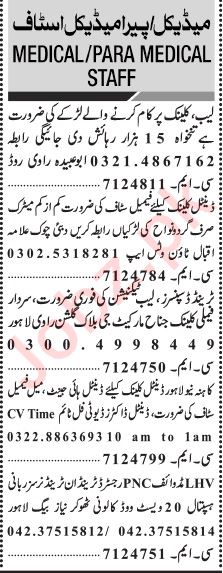 میڈیکل/پیرا میڈیکل اسٹاف
MEDICAL/PARA MEDICAL
STAFF
لیب، کلینک پر کام کرنے والے لڑکے کی ضرورت
ہے تنخواہ 15 ہزار رہائش دی جائیگی رابطہ
0321.4867162 ابوعبیدہ راوی روڈ
سی۔ایم۔7124811
ڈینٹل کلینک کیلئے فیمیل سٹاف کی ضرورت کم از کم میٹرک
صرف گردونواح کی لڑکیاں رابطہ کریں دبئی چوک علامہ
اقبال ٹاؤن وٹس ایپ 0302.5318281
سی۔ایم۔7124784
ٹرینڈ ڈسپنسرز، لیب ٹیکنیشن کی فوری ضرورت، سردار
فیملی کلینک جناح مارکیٹ جی بلاک گلشن راوی لاہور
0300.4998449
سی۔ایم۔7124750
کاہنہ نیو لاہور ڈینٹل کلینک کیلئے ڈینٹل ہائی جینسٹ، میل فیمیل
سٹاف کی ضرورت، ڈینٹل ڈاکٹرز ڈیوٹی فل ٹائم CV Time
0322.886369310 am to 1am
سی۔ایم۔7124799
LHV مڈوائف PNC رجسٹرڈ ٹرینڈ ان ٹرینڈ نرسز ربانی
ہسپتال 20 ویسٹ ووڈ کالونی ٹھوکر نیاز بیگ لاہور
042.37515812/ 042.37515814
سی۔ایم۔7124751
Jobz.pk